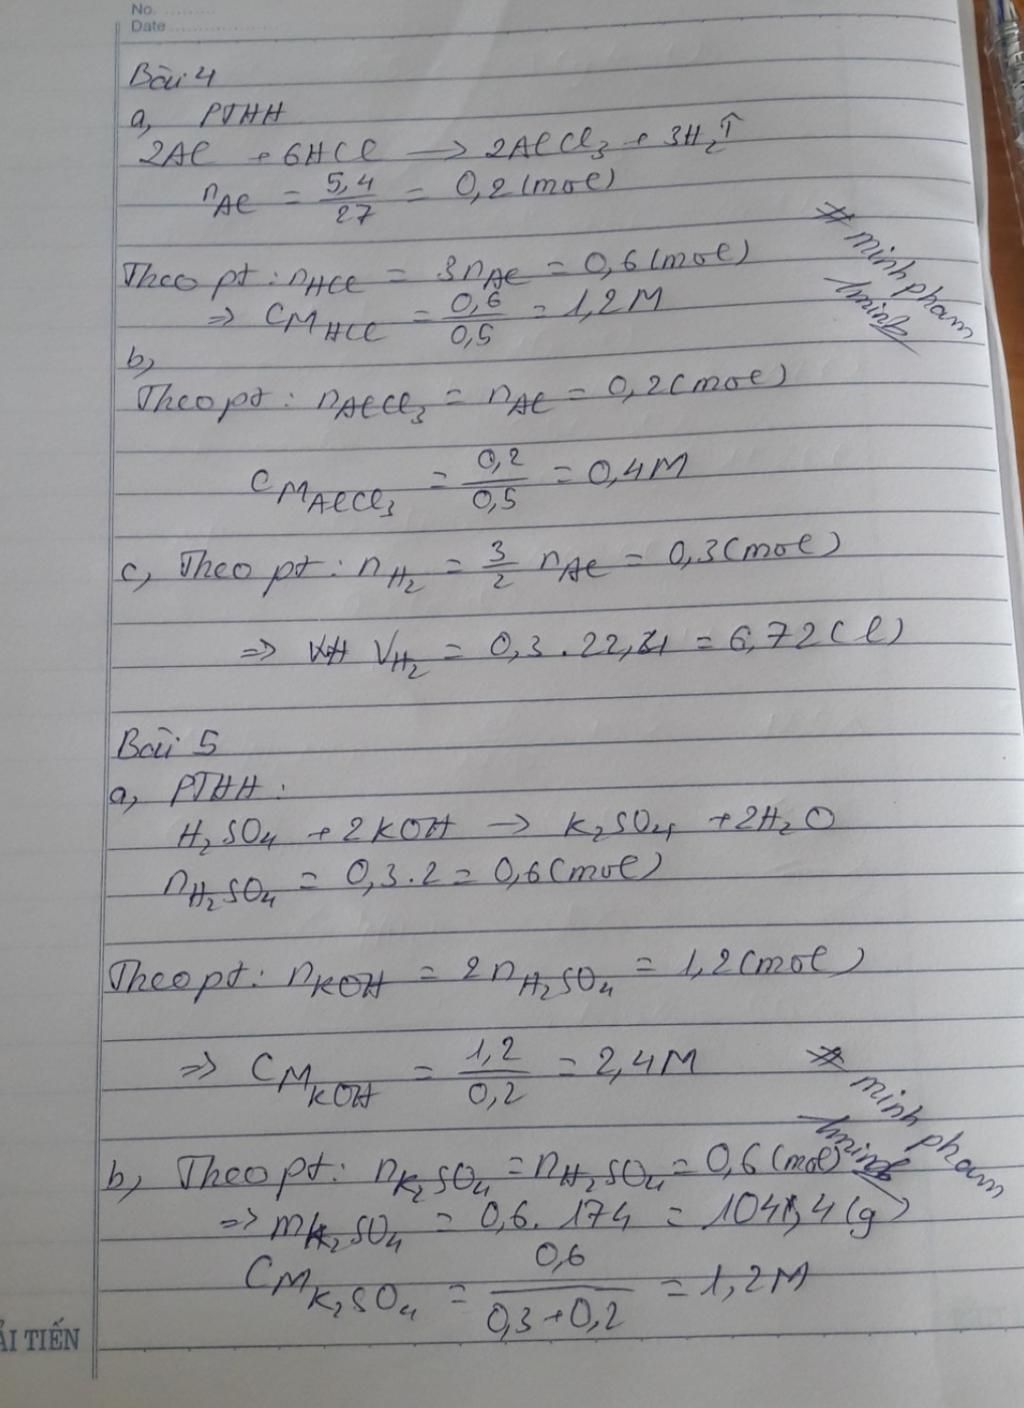 No.
Date
Bài 4
a, PTHH
2Al + 6HCl → 2AlCl₃ + 3H₂↑
nAl = 5,4/27 = 0,2 (mol)
Theo pt: nHCl = 3nAl = 0,6 (mol)
⇒ CMHCl = 0,6/0,5 = 1,2M
* minh pham
1minh
b,
Theo pt: nAlCl₃ = nAl = 0,2 (mol)
CMAlCl₃ = 0,2/0,5 = 0,4M
c, Theo pt: nH₂ = 3/2 nAl = 0,3 (mol)
⇒ VH₂ = 0,3 . 22,4 = 6,72 (l)
Bài 5
a, PTHH:
H₂SO₄ + 2KOH → K₂SO₄ + 2H₂O
nH₂SO₄ = 0,3.2 = 0,6 (mol)
Theo pt: nKOH = 2nH₂SO₄ = 1,2 (mol)
⇒ CMKOH = 1,2/0,2 = 2,4M
* minh pham
1minh
b, Theo pt: nK₂SO₄ = nH₂SO₄ = 0,6 (mol)
⇒ mK₂SO₄ = 0,6. 174 = 104,4 (g)
CMK₂SO₄ = 0,6/(0,3 + 0,2) = 1,2M
ẢI TIẾN